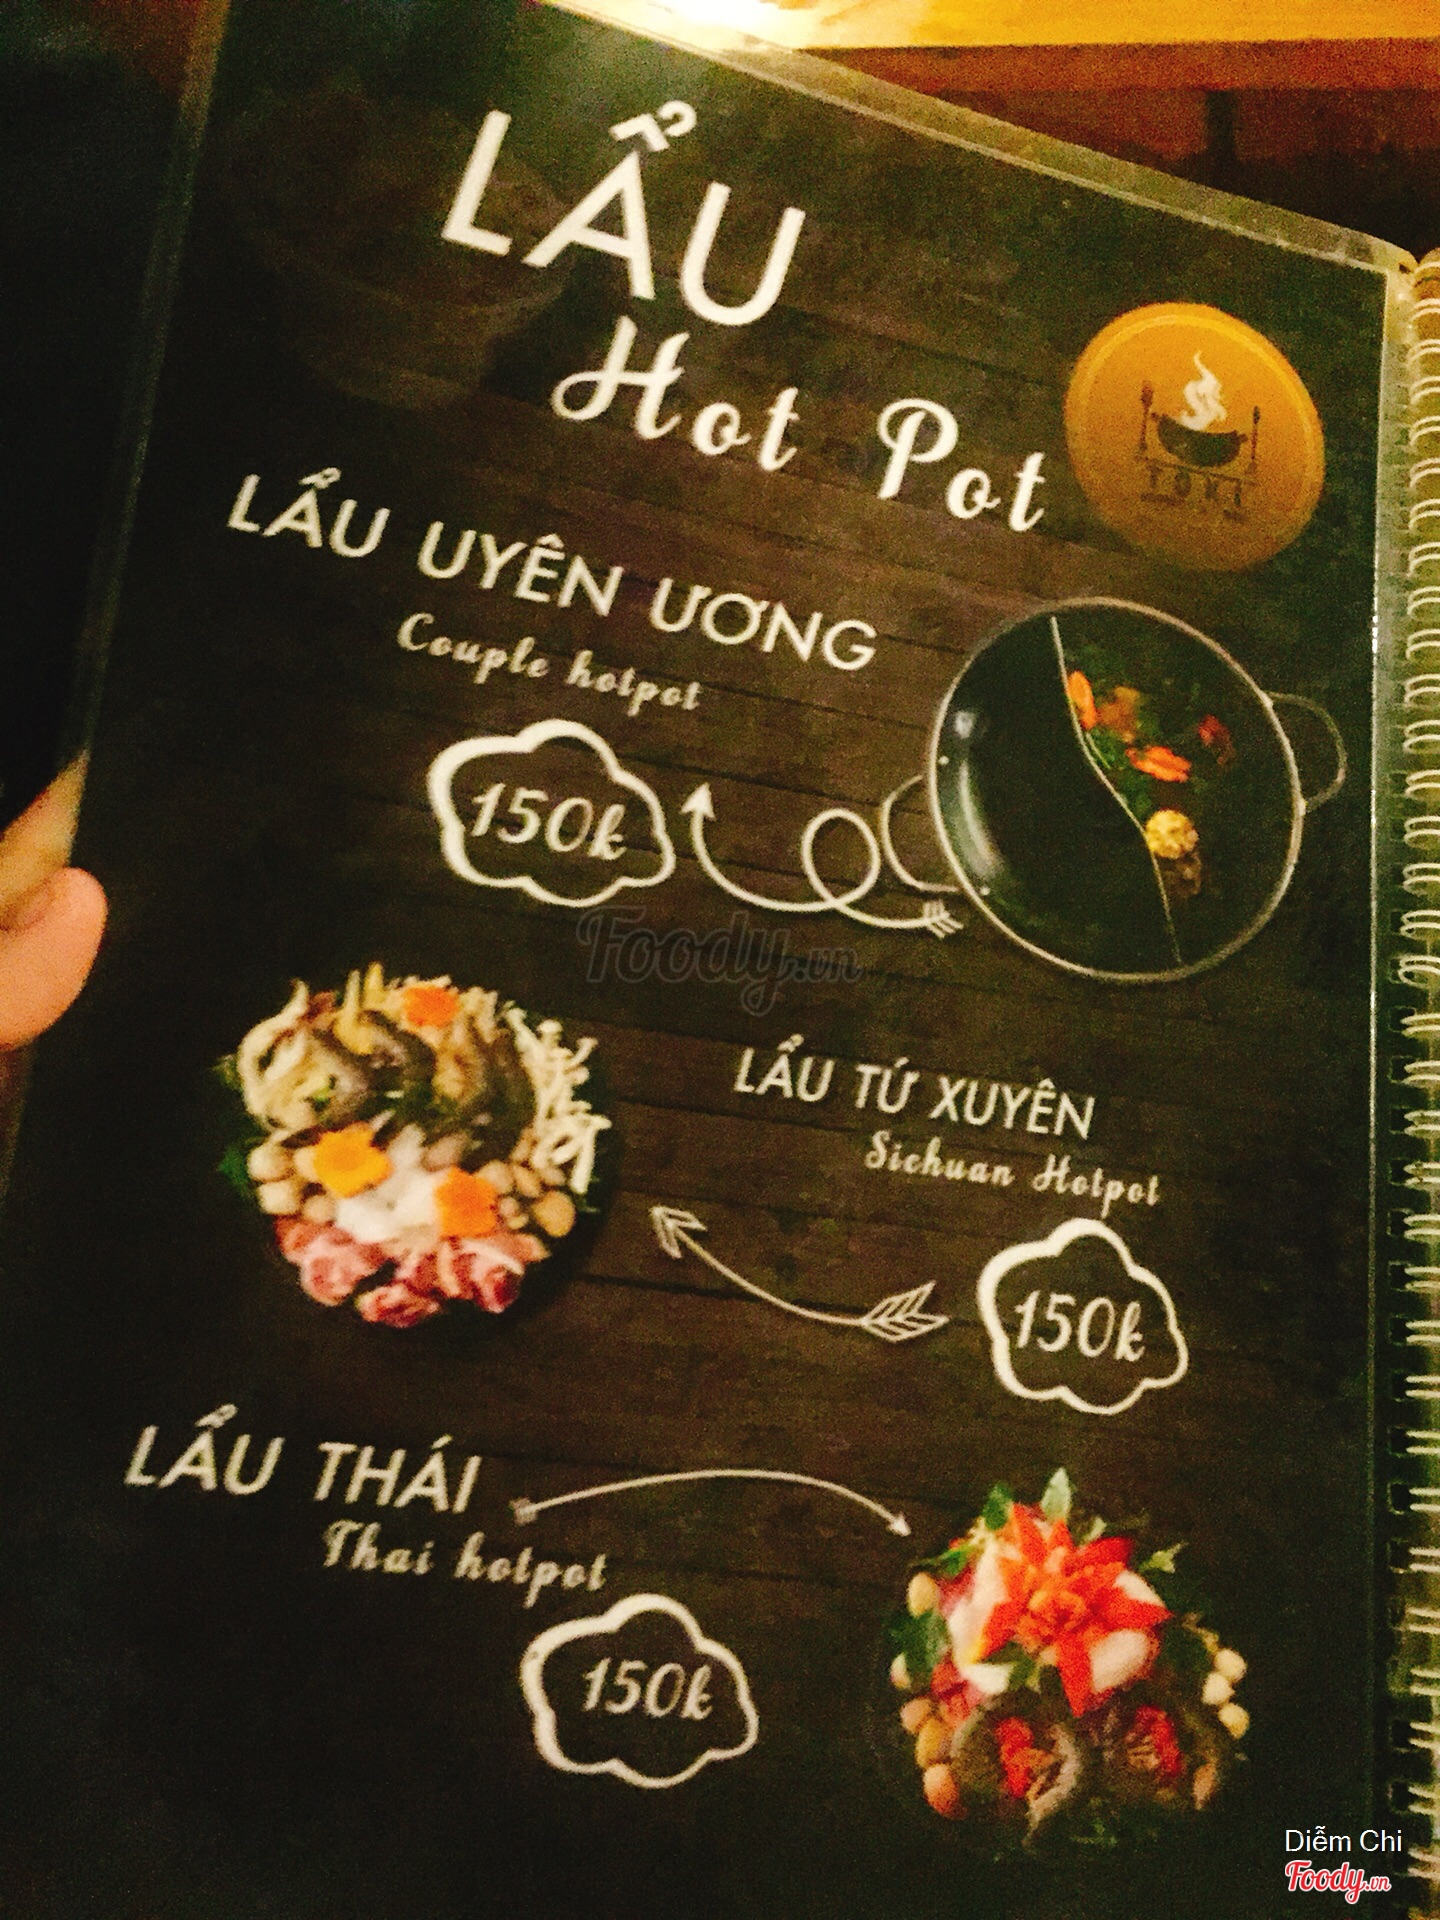 LẨU
Hot Pot
TOKI
LẨU UYÊN ƯƠNG
Couple hotpot
150k
Foody.vn
LẨU TỨ XUYÊN
Sichuan Hotpot
150k
LẨU THÁI
Thai hotpot
150k
Diễm Chi
Foody.vn